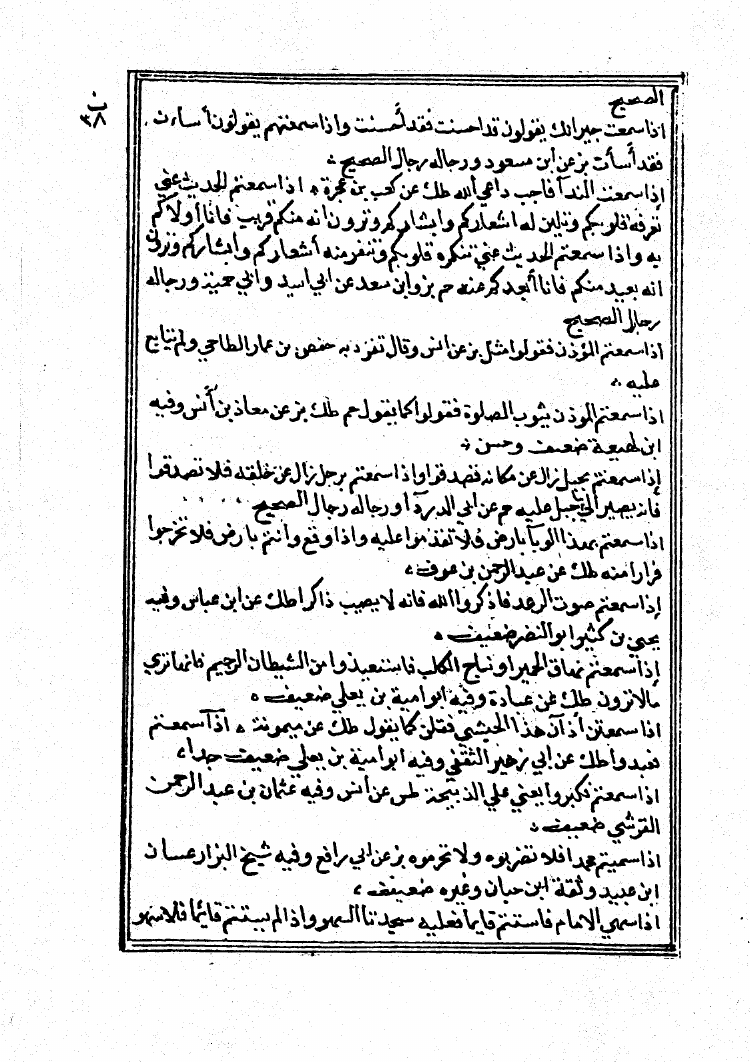 ن
٣٨
الصحيح
اذا سمعت جيرانك يقولون قد احسنت فقد أحسنت واذا سمعتهم يقولون أسأت
فقد أسأت بز عن ابن مسعود ورجاله رجال الصحيح
إذا سمعت الندآ فاجب داعي الله طك عن كعب بن عجرة اذا سمعتم الحديث عني
تعرفه قلوبكم وتلين له اشعاركم وابشاركم وترون انه منكم قريب فانا أولاكم
به واذا سمعتم الحديث عني تنكره قلوبكم وتنفر منه أشعاركم وابشاركم وترون
انه بعيد منكم فانا أبعدكم عنه حم بز وابن سعد عن ابي اسيد وابي حميد ورجاله
رجال الصحيح
اذا سمعتم المؤذن فقولوا مثل بز عن انس وقال تفرد به حفص بن عمار الطاحي ولم يتابع
عليه
اذا سمعتم الموذن يثوب الصلوة فقولوا كما يقول حم طك بز عن معاذ بن أنس وفيه
ابن لهيعة ضعيف وحسن
إذا سمعتم بجبل زال عن مكانه فصدقوا واذا سمعتم برجل زال عن خلقه فلا تصدقوا
فانه يصير الي ما جبل عليه حم عن ابي الدردآ ورجاله رجال الصحيح
اذا سمعتم بهذا الوبآ بارض فلا تقدموا عليه واذا وقع وانتم بارض فلا تخرجوا
فرارا منه طك عن عبد الرحمن بن عوف
إذا سمعتم صوت الرعد فاذكروا الله فانه لا يصيب ذاكرا طك عن ابن عباس وفيه
يحيي بن كثير ابو النضر ضعيف
إذا سمعتم نهاق الحمير او نباح الكلب فاستعيذوا من الشيطان الرجيم فانها تري
مالا ترون طك عن عبادة وفيه ابو امية بن يعلي ضعيف
اذا سمعتن أذان هذا الحبشي فقلن كما يقول طك عن ميمونة اذا سميتم
فعبدوا طك عن ابي زهير الثقفي وفيه ابو امية بن يعلي ضعيف جدا
اذا سميتم فكبروا يعني علي الذبيحة طس عن انس وفيه عثمان بن عبد الرحمن
القرشي ضعيف
اذا سميتم محمدا فلا تضربوه ولا تحرموه بز عن ابي رافع وفيه شيخ البزار غسان
ابن عبيد وثقة ابن حبان وغيره ضعيف
اذا سهي الامام فاستتم قايما فعليه سجدتا السهو واذا لم يستتم قايما فلا سهو